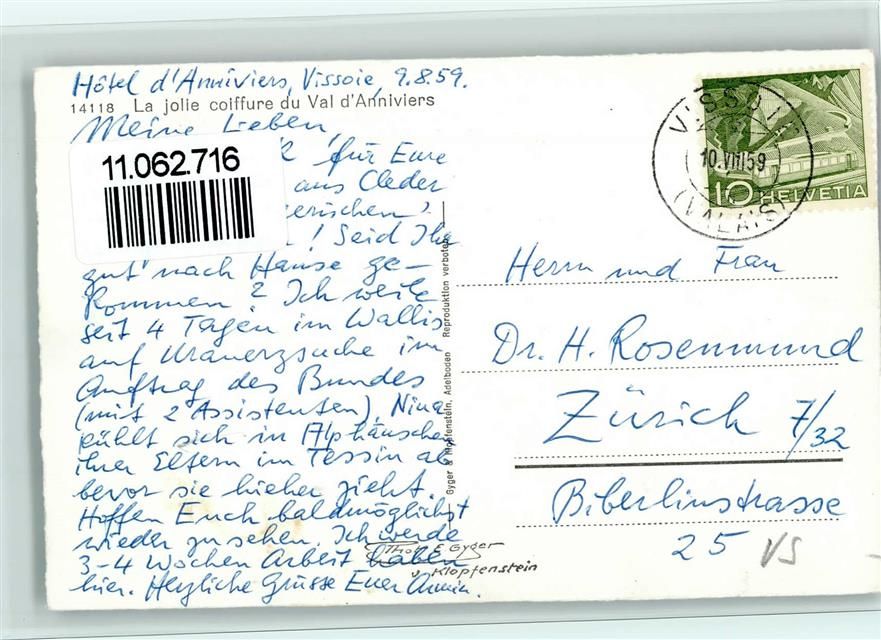 Hôtel d'Anniviers, Vissoie, 9.8.59.
14118 La jolie coiffure du Val d'Anniviers
Meine Lieben,
11.062.716
für Eure
aus Cleder
erischen
! Seid Ihr
gut nach Hause ge-
kommen? Ich weile
seit 4 Tagen im Wallis
auf Uranerzsuche im
Auftrag des Bundes
(mit 2 Assistenten), Nina
kühlt sich in Alphäuschen
ihrer Eltern im Tessin ab
bevor sie hieher zieht.
Hoffen Euch baldmöglichst
wieder zu sehen. Ich werde
3-4 Wochen Arbeit haben
hier. Herzliche Grüsse Euer Armin.
Gyger & Klopfenstein, Adelboden Reproduktion verboten
Phot. E Gyger
u Klopfenstein
VISSOIE
10.VIII.59
(VALAIS)
10 HELVETIA
Herrn und Frau
Dr. H. Rosenmund
Zürich 7/32
Biberlinstrasse
25 VS